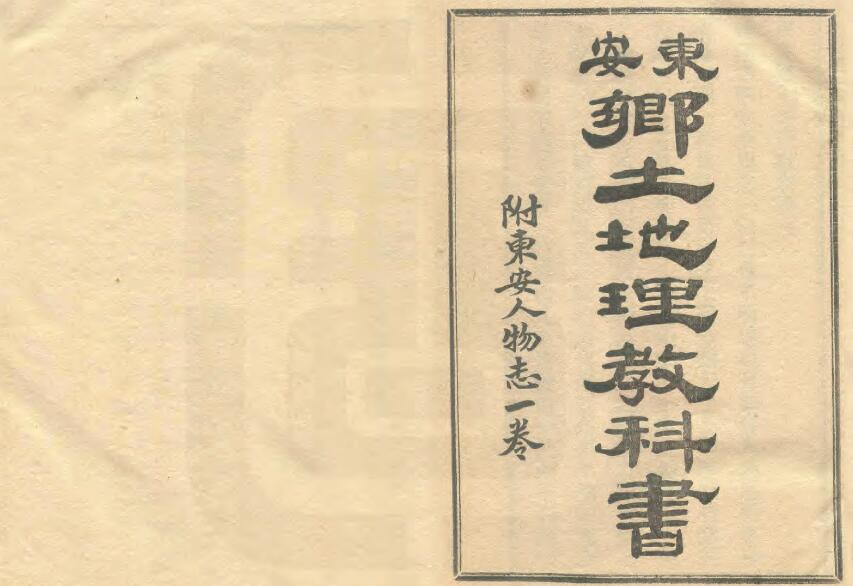 東安
鄉土地理教科書
附東安人物志一卷